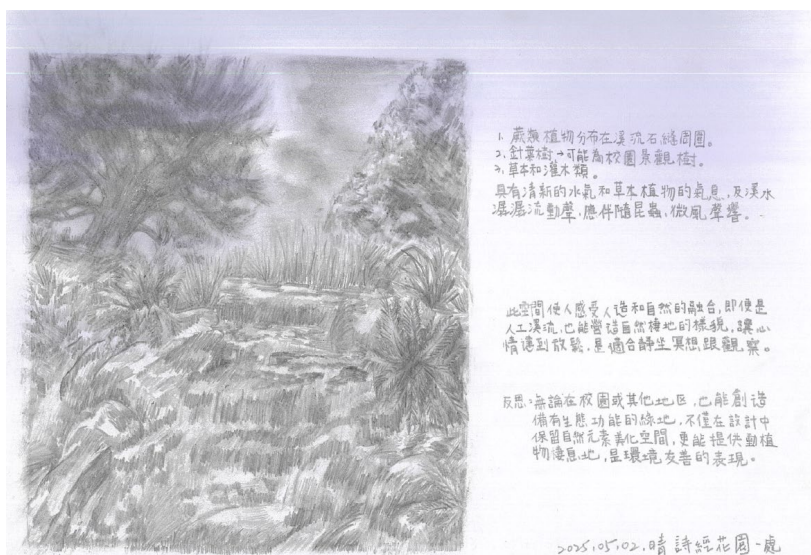 1. 蕨類植物分布在溪流石縫周圍。
2. 針葉樹→可能為校園景觀樹。
3. 草本和灌木類。
具有清新的水氣和草本植物的氣息,及溪水
潺潺流動聲,應伴隨昆蟲、微風聲響。
此空間使人感受人造和自然的融合,即便是
人工溪流,也能營造自然棲地的樣貌,讓心
情達到放鬆,是適合靜坐冥想跟觀察。
反思:無論在校園或其他地区,也能創造
備有生態功能的綠地,不僅在設計中
保留自然元素美化空間,更能提供動植
物淒息地,是環境友善的表現。
2025.05.02.晴 詩經花園一處